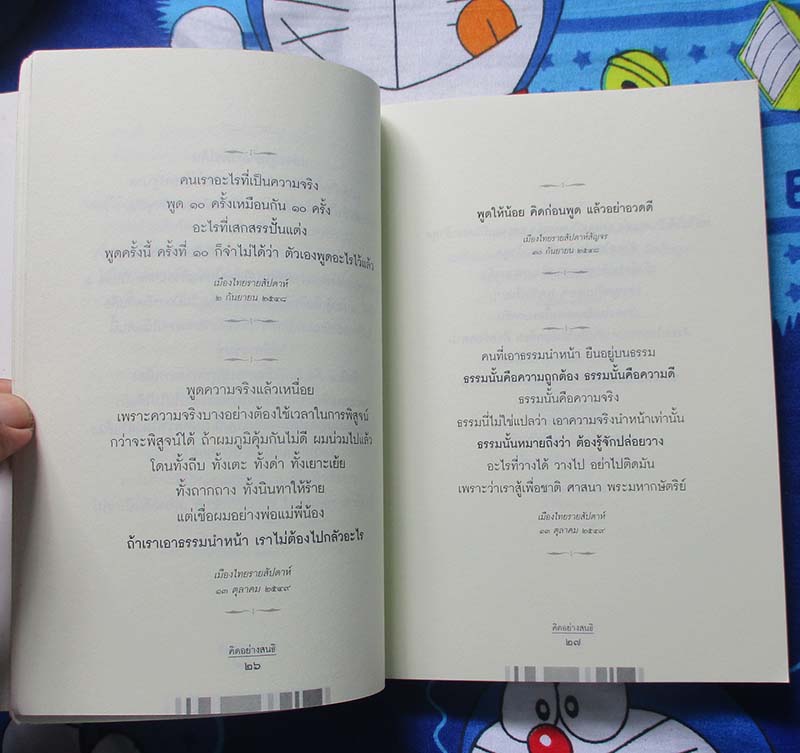 คนเราอะไรที่เป็นความจริง
พูด ๑๐ ครั้งเหมือนกัน ๑๐ ครั้ง
อะไรที่เสกสรรปั้นแต่ง
พูดครั้งนี้ ครั้งที่ ๑๐ ก็จำไม่ได้ว่า ตัวเองพูดอะไรไว้แล้ว
เมืองไทยรายสัปดาห์
๒ กันยายน ๒๕๔๘
พูดความจริงแล้วเหนื่อย
เพราะความจริงบางอย่างต้องใช้เวลาในการพิสูจน์
กว่าจะพิสูจน์ได้ ถ้าผมภูมิคุ้มกันไม่ดี ผมน่วมไปแล้ว
โดนทั้งถีบ ทั้งเตะ ทั้งด่า ทั้งเยาะเย้ย
ทั้งถากถาง ทั้งนินทาให้ร้าย
แต่เชื่อผมอย่างพ่อแม่พี่น้อง
ถ้าเราเอาธรรมนำหน้า เราไม่ต้องไปกลัวอะไร
เมืองไทยรายสัปดาห์
๑๓ ตุลาคม ๒๕๔๙
คิดอย่างสนธิ
๒๖
พูดให้น้อย คิดก่อนพูด แล้วอย่าอวดดี
เมืองไทยรายสัปดาห์สัญจร
๑๐ กันยายน ๒๕๔๘
คนที่เอาธรรมนำหน้า ยืนอยู่บนธรรม
ธรรมนั้นคือความถูกต้อง ธรรมนั้นคือความดี
ธรรมนั้นคือความจริง
ธรรมนี่ไม่ใช่แปลว่า เอาความจริงนำหน้าเท่านั้น
ธรรมนั้นหมายถึงว่า ต้องรู้จักปล่อยวาง
อะไรที่วางได้ วางไป อย่าไปติดมัน
เพราะว่าเราสู้เพื่อชาติ ศาสนา พระมหากษัตริย์
เมืองไทยรายสัปดาห์
๑๓ ตุลาคม ๒๕๔๙
คิดอย่างสนธิ
๒๗